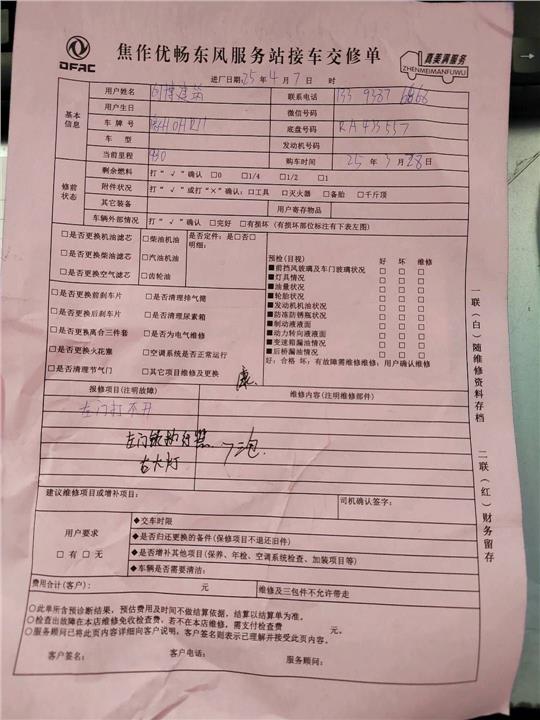 DFAC
焦作优畅东风服务站接车交修单
真美满服务
ZHENMEIMANFUWU
进厂日期:25年4月7日 时
基本信息
用户姓名
联系电话
用户生日
微信号码
车牌号
底盘号码 RA433557
车型
发动机号码
当前里程 430
购车时间 25年3月28日
修前状态
剩余燃料 打“√”确认 □0 □1/4 □1/2 □1
附件状况 打“√”或打“×”确认:□工具 □灭火器 □备胎 □千斤顶
其它装备
用户寄存物品
车辆外部情况 打“√”确认 □完好 □有损坏(有损坏部位标注有下表左图)
□是否更换机油滤芯
□是否更换柴油滤芯
□是否更换空气滤芯
□柴油机油
□汽油机油
□齿轮油
是否定件:是□否□
明细:
□是否更换前刹车片 □是否清理排气筒
□是否更换后刹车片 □是否清理尿素箱
□是否更换离合三件套 □是否为电气维修
□是否更换火花塞 □空调系统是否正常运行
□是否清理节气门 □其它项目维修及更换
预检(目视) 好 坏 维修
■前挡风玻璃及车门玻璃状况 □ □ □
■灯具情况 □ □ □
■油量状况 □ □ □
■轮胎状况 □ □ □
■发动机机油状况 □ □ □
■防冻防锈瓶状况 □ □ □
■制动液液面 □ □ □
■动力转向液液面 □ □ □
■变速箱漏油情况 □ □ □
■后桥漏油情况 □ □ □
好:合格 坏:有故障需维修维修:用户确认维修
报修项目(注明故障)
维修内容(注明维修部件)
左门打不开
左门锁
右大灯
三包
建议维修项目或增补项目:
司机确认签字:
用户要求
□有□无
◆交车时限
◆是否归还更换的备件(保修项目不退还旧件)
◆是否增补其他项目(保养、年检、空调系统检查、加装项目等)
◆车辆是否需要清洁:
费用合计(客户): 元
维修及三包件不允许带走
○此单所含预诊断结果,预估费用及时间不做结算依据,结算以结算单为准。
○检查出故障在本店维修免收检查费,若不在本店维修,需支付检查费 元。
○服务顾问已将此页内容详细向客户说明,客户签名则表示已理解并接受此页内容。
客户签名:
客户电话:
服务顾问:
一联(白)随维修资料存档
二联(红)财务留存